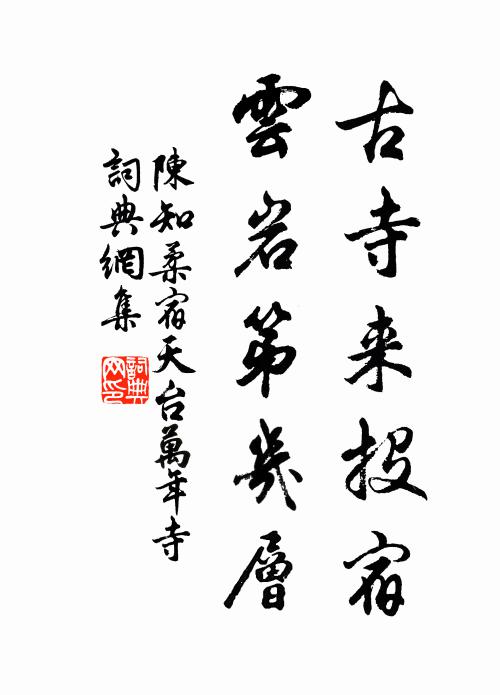 古寺来投宿
雲岩第幾層
陳知柔宿天台萬年寺
詞典網集
詞典網印